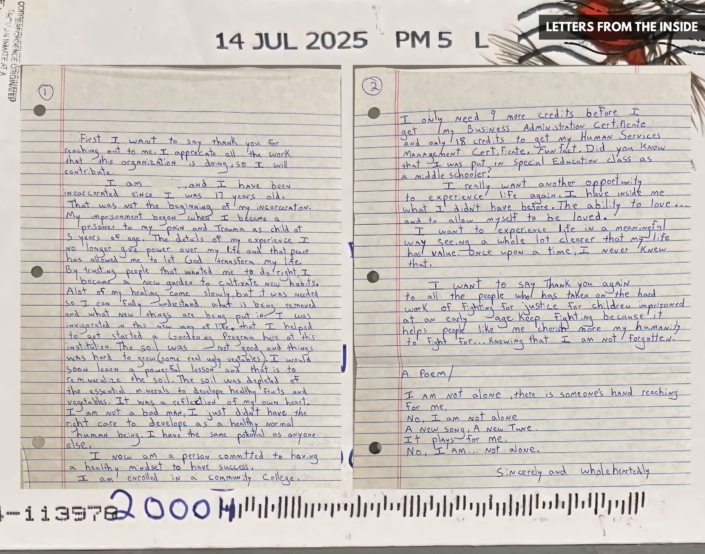 LETTERS FROM THE INSIDE
14 JUL 2025 PM 5 L
1
First I want to say thank you for
reaching out to me. I appreciate all the work
that this organization is doing, so I will
contribute.
I am ...and I have been
incarcerated since I was 17 years old.
That was not the beginning of my incarceration.
My imprisonment began when I became a
prisoner to my pain and Trauma as child at
5 years of age. The details of my experience I
no longer give power over my life and that peace
has allowed me to let God transform my life.
By trusting people that wanted me to do right, I
became a new garden to cultivate new habits.
Alot of my healing came slowly but it was needed
so I can fully understand what is being removed
and what new things are being put in. I was
invigorated in this new way of life, that I helped
to get started a Gardening Program here at this
institution. The soil was not good, and things
was hard to grow (some real ugly vegetables). I would
soon learn a powerful lesson and that is to
remineralize the soil. The soil was depleted of
the essential minerals to develop healthy fruits and
vegetables. It was a reflection of my own heart.
I am not a bad man, I just didn't have the
right care to develop as a healthy normal
human being. I have the same potential as anyone
else.
I now am a person committed to having
a healthy mindset to have success.
I am enrolled in a Community College.
2
I only need 9 more credits before I
get my Business Administration Certificate
and only 18 credits to get my Human Services
Management Certificate. Fun fact, Did you know
that I was put in Special Education class as
a middle schooler?
I really want another opportunity
to experience life again. I have inside me
what I didn't have before. The ability to love...
and to allow myself to be loved!
I want to experience life in a meaningful
way seeing a whole lot clearer that my life
has value. Once upon a time, I never knew
that.
I want to say Thank you again
to all the people who has taken on the hard
work of Fighting for justice for children imprisoned
at an early age. Keep Fighting because it
helps people like me cherish more my humanity
to Fight for... Knowing that I am not Forgotten.
A Poem/
I am not alone, there is someone's hand reaching
for me.
No, I am not alone
A new song, A new Tune.
It plays for me.
No, I Am... Not alone.
Sincerely and wholeheartedly
4-113978
2000H